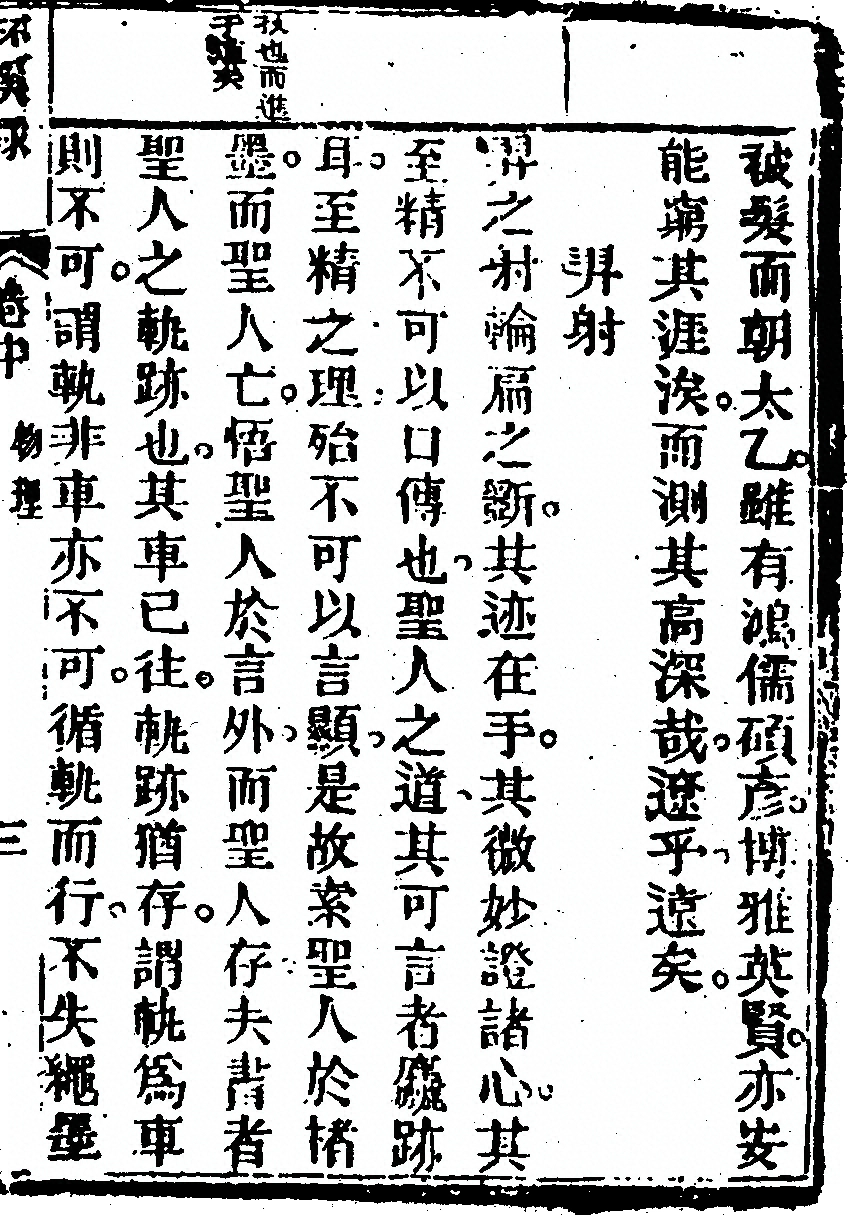 被髮而朝太乙雖有鴻儒碩彥博雅英賢亦安
能窮其涯涘而測其高深哉遼乎遠矣
羿射
羿之射輪扁之斲其迹在手其微妙證諸心其
至精不可以口傳也聖人之道其可言者麤跡
耳至精之理殆不可以言顯是故索聖人於楮
墨而聖人亡悟聖人於言外而聖人存夫書者
聖人之軌跡也其車已往軌跡猶存謂軌為車
則不可謂軌非車亦不可循軌而行不失繩墨
技也而進
乎道矣
卷中
物理
三